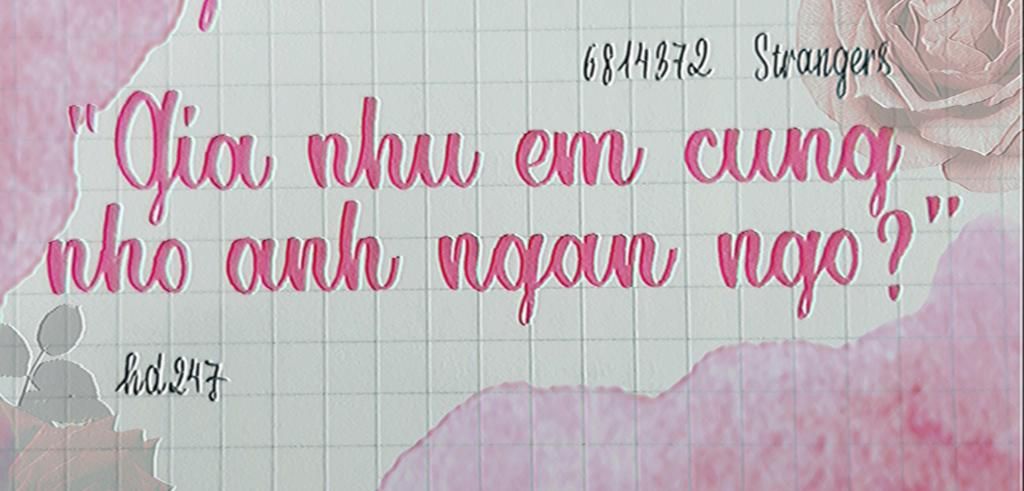 6814372 Strangers
"Gia nhu em cung
nho anh ngan ngo?"
hd247